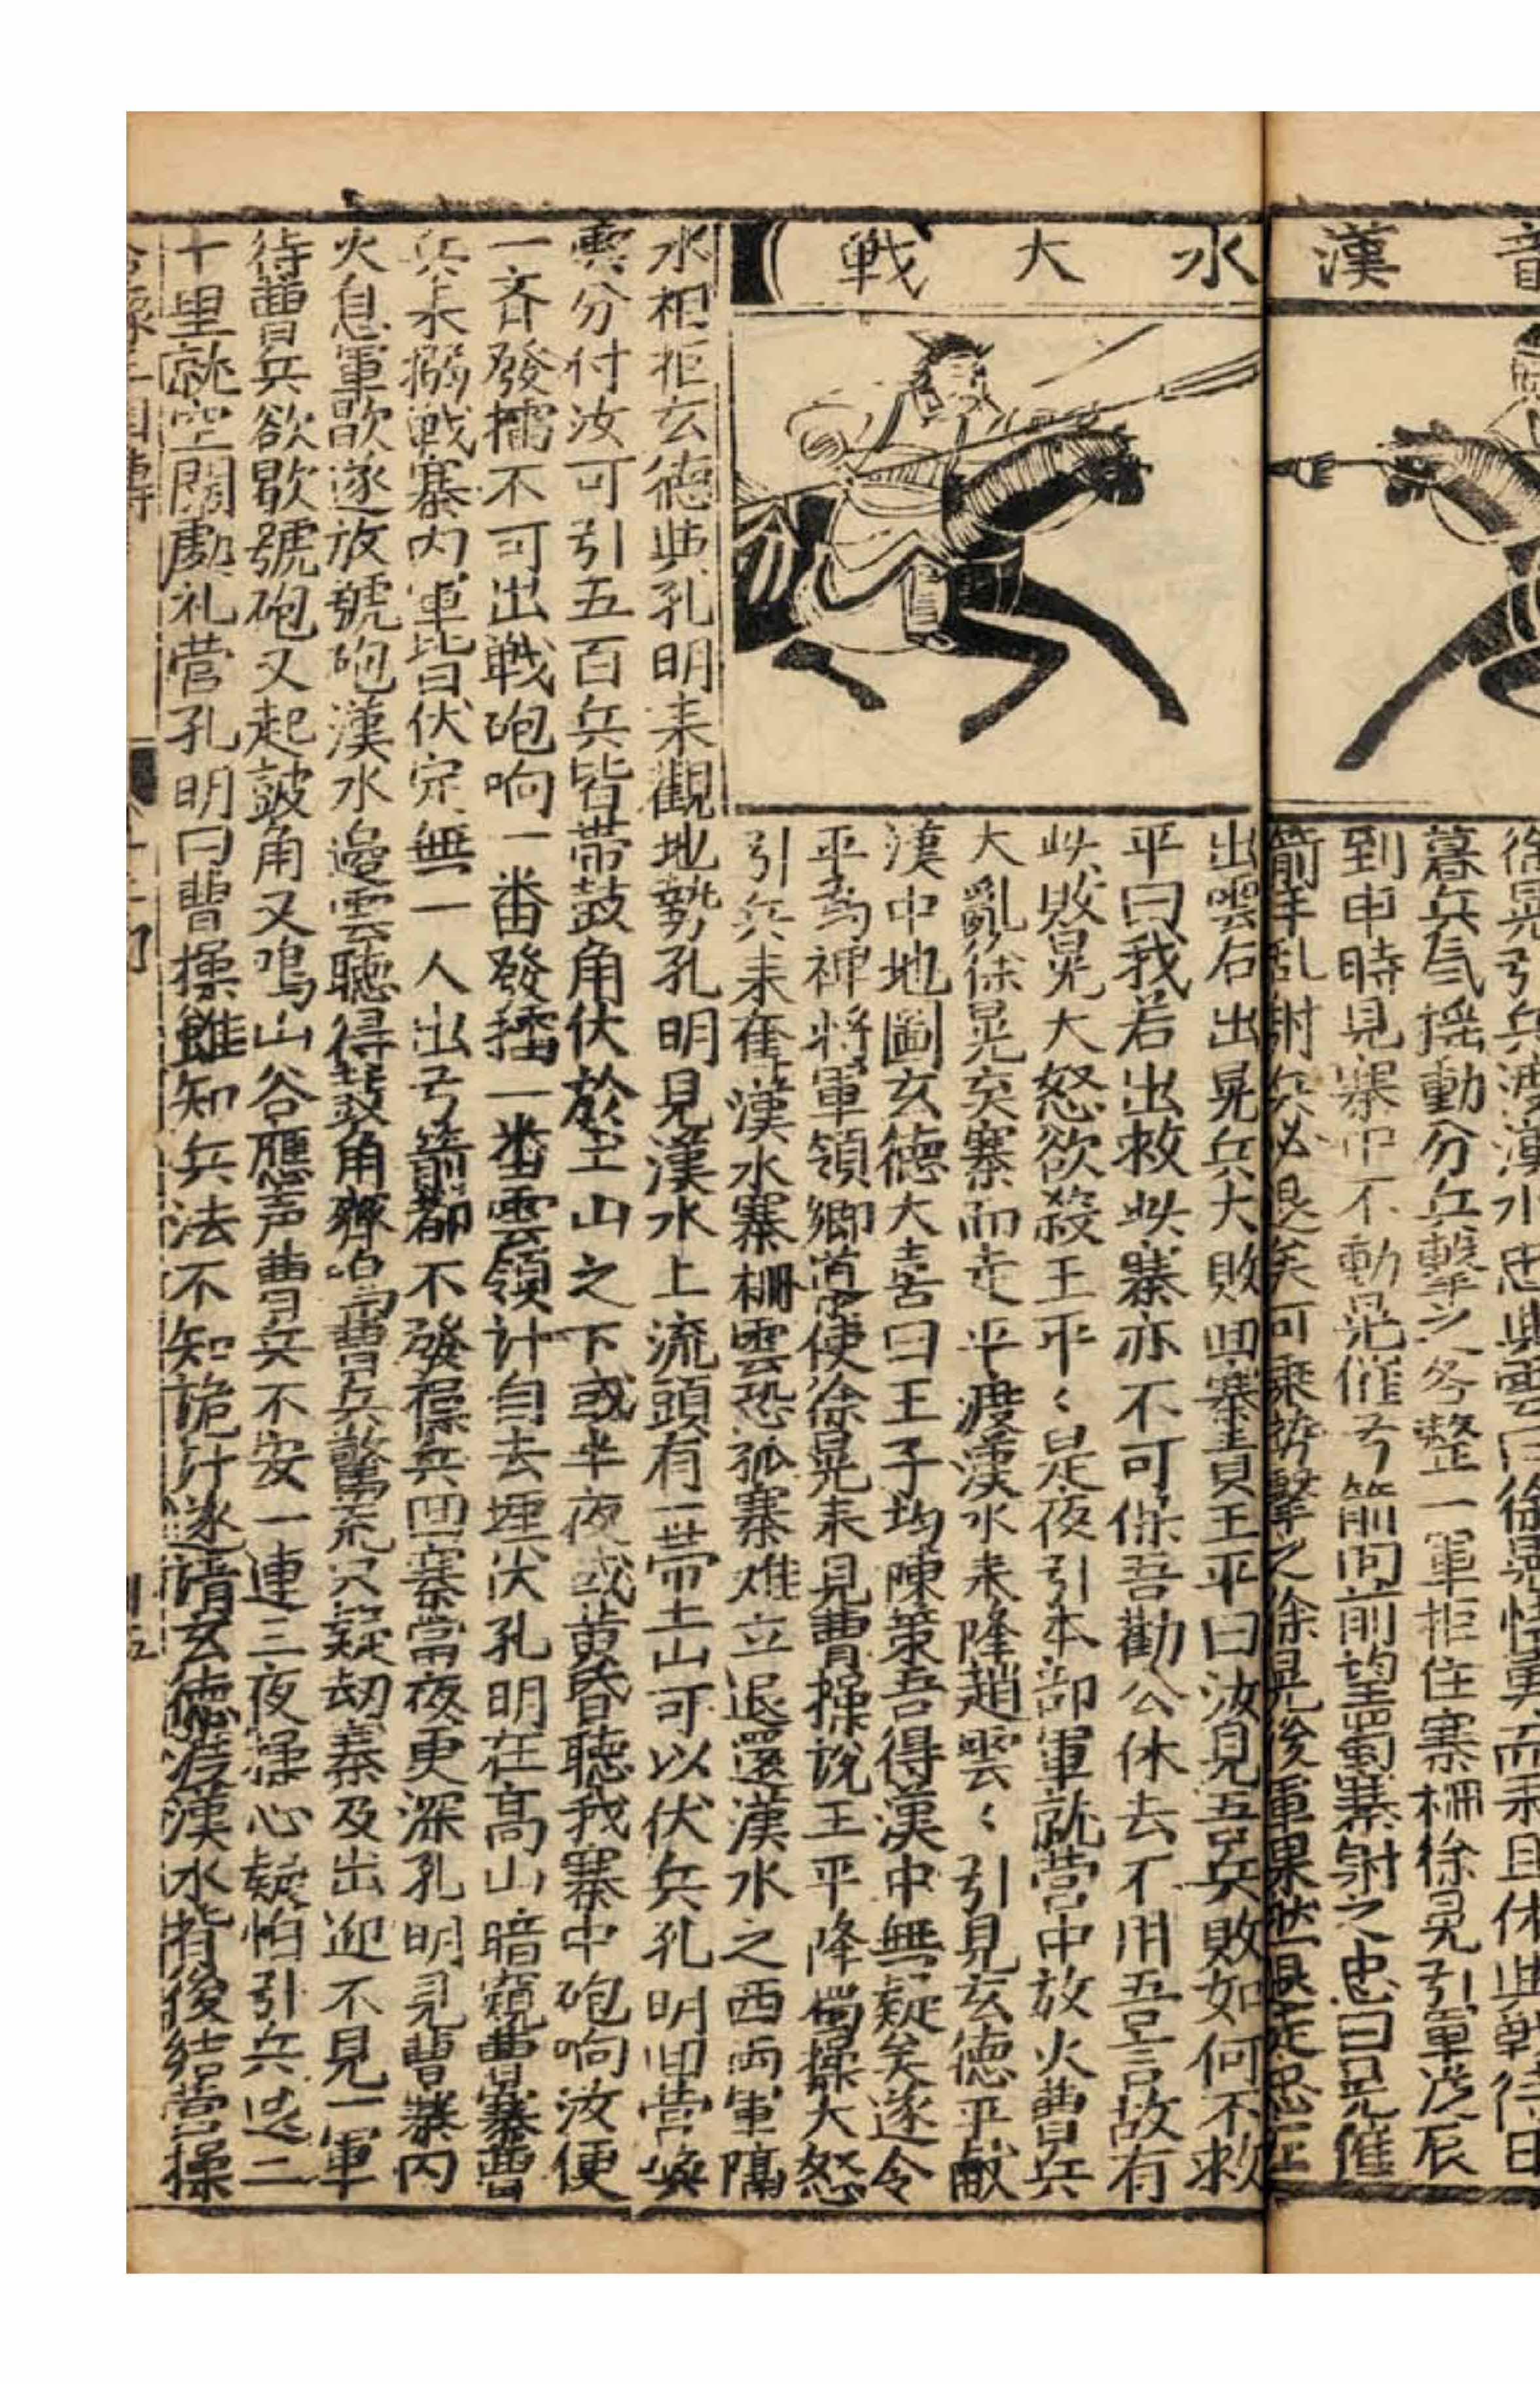 音漢水大戰
徐晃引兵渡漢水忠與雲曰徐晃恃勇而來且休與戰待日
暮兵氣搖動分兵擊之各整一軍拒住寨柵徐晃引軍從辰
到申時見寨中不動晃催弓箭向前望蜀寨射之忠曰晃催
箭手乱射兵必退矣可乘势擊之徐晃後軍果然退走忠左
出雲右出晃兵大敗囬寨責王平曰汝見吾兵敗如何不救
平曰我若出救此寨亦不可保吾勸公休去不用吾言故有
此敗晃大怒欲殺王平〻是夜引本部軍就营中放火曹兵
大亂徐晃弃寨而走平渡漢水来降趙雲〻引見玄德平獻
漢中地圖玄德大喜曰王子均陳策吾得漢中無疑矣遂令
平為裨將軍領鄉導使徐晃来見曹操說王平降蜀操大怒
引兵来奪漢水寨柵雲恐孤寨难立退還漢水之西兩軍隔
水相拒玄德與孔明来觀地勢孔明見漢水上流頭有一带土山可以伏兵孔明囬营喚
雲分付汝可引五百兵皆带鼓角伏於土山之下或半夜或黄昏聽我寨中砲响汝便
一齐發擂不可出戰砲响一番發擂一番雲領计自去埋伏孔明在高山暗窺曹寨曹
兵来搦戰寨内軍皆伏定無一人出弓箭都不發操兵囬寨當夜更深孔明見曹寨内
火息軍歇遂放號砲漢水邊雲聽得鼓角齊鳴曹兵驚荒只疑劫寨及出迎不見一軍
待曹兵欲歇號砲又起鼓角又鳴山谷應声曹兵不安一連三夜操心疑怕引兵退二
十里就空闊處札营孔明曰曹操雖知兵法不知詭计遂請玄德渡漢水背後结营操